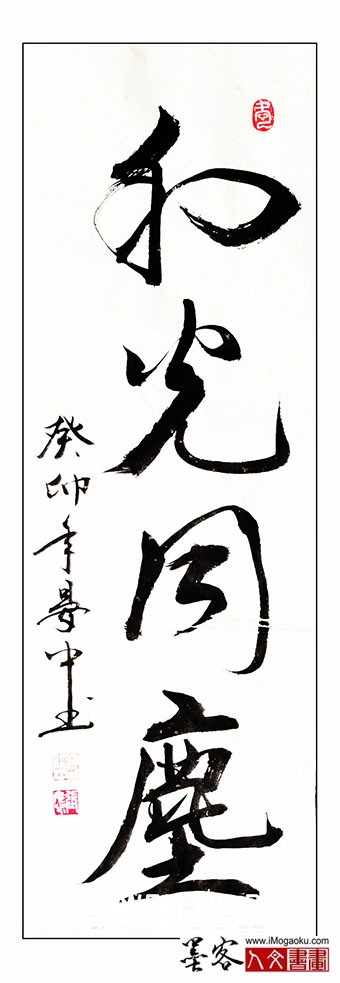 和光同塵
癸卯年夢中书
墨客
www.iMogaoku.com
人文書畫